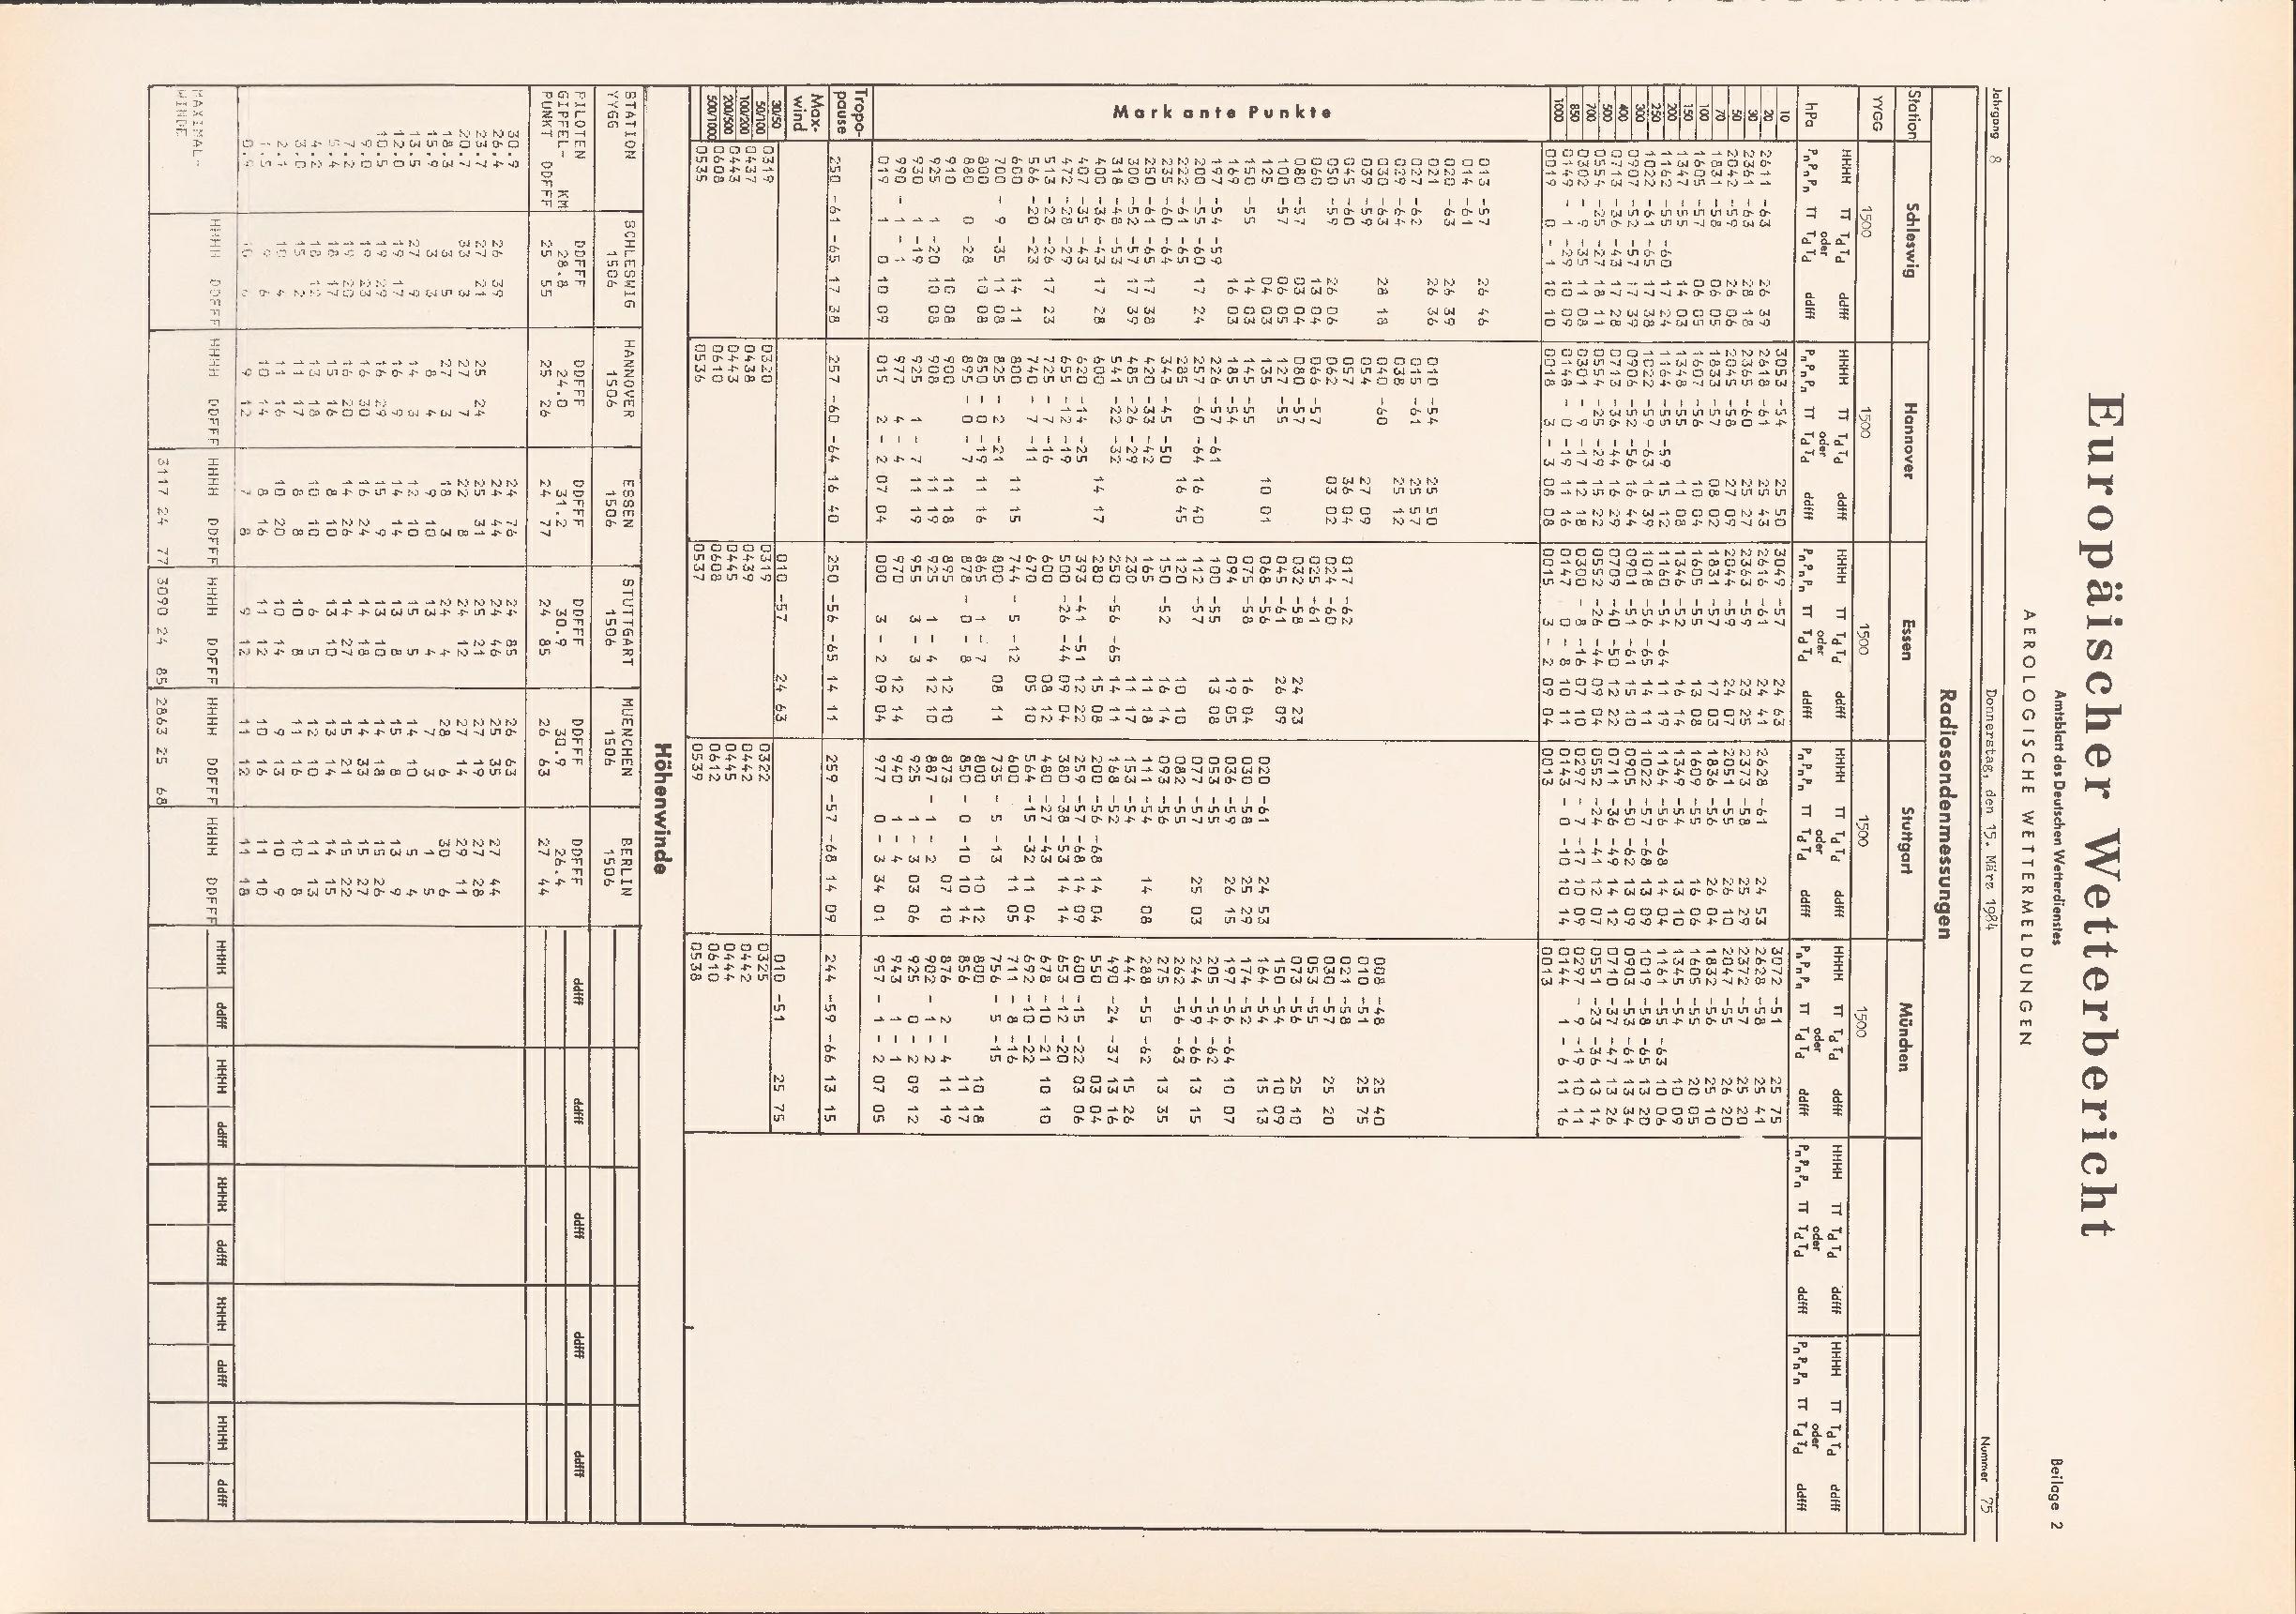 Europäischer Wetterbericht
Amtsblatt des Deutschen Wetterdienstes
Beilage 2
AEROLOGISCHE WETTERMELDUNGEN
Jahrgang 8 Donnerstag, den 15. März 1984 Nummer 75
Radiosondenmessungen
Station Schleswig Hannover Essen Stuttgart München
YYGG 1500 1500 1500 1500 1500
hPa HHHH TT TdTd ddfff HHHH TT TdTd ddfff HHHH TT TdTd ddfff HHHH TT TdTd ddfff HHHH TT TdTd ddfff HHHH TT TdTd ddfff HHHH TT TdTd ddfff
oder oder oder oder oder oder oder
PnPnPn TT TdTd ddfff PnPnPn TT TdTd ddfff PnPnPn TT TdTd ddfff PnPnPn TT TdTd ddfff PnPnPn TT TdTd ddfff PnPnPn TT TdTd ddfff PnPnPn TT TdTd ddfff
10 3053 -54 25 50 3049 -57 24 63 3072 -51 25 75
20 2611 -63 26 39 2618 -61 25 43 2616 -61 24 41 2628 -61 24 53 2628 -58 25 41
30 2361 -63 28 18 2365 -60 25 27 2363 -59 23 25 2373 -58 25 29 2372 -57 25 20
50 2042 -59 26 06 2045 -58 27 09 2044 -59 24 07 2051 -55 26 10 2047 -55 26 20
70 1831 -58 06 05 1833 -57 08 02 1831 -57 17 03 1836 -56 26 04 1832 -56 25 10
100 1605 -57 06 05 1607 -56 10 04 1605 -55 13 08 1609 -55 16 06 1605 -55 20 05
150 1347 -55 14 03 1348 -55 11 08 1346 -52 16 14 1349 -54 13 10 1345 -54 10 09
200 1162 -55 -60 17 24 1164 -55 -59 15 12 1160 -54 -64 11 19 1164 -56 -68 14 04 1161 -55 -63 10 06
250 1022 -61 -65 17 38 1022 -59 -63 16 39 1018 -56 -65 14 11 1022 -57 -68 13 09 1019 -58 -65 13 20
300 0907 -52 -57 17 39 0906 -52 -56 16 44 0901 -51 -61 15 10 0905 -50 -62 13 09 0903 -53 -61 13 34
400 0713 -36 -43 17 28 0713 -36 -44 16 29 0709 -40 -50 12 22 0711 -36 -49 14 12 0710 -37 -47 13 26
500 0554 -25 -27 18 11 0554 -25 -29 15 22 0552 -26 -44 09 04 0552 -24 -41 12 07 0551 -23 -36 13 14
700 0302 - 9 -35 11 08 0301 - 9 -17 12 18 0300 - 8 -16 07 10 0297 - 7 -17 10 09 0297 - 9 -19 10 11
850 0149 - 1 -29 10 09 0148 - 0 -19 11 16 0147 0 - 8 10 11 0143 - 0 -10 10 14 0144 1 - 6 11 16
1000 0019 0 - 1 10 10 0018 3 - 3 08 08 0015 3 - 2 09 04 0013 0013
Markante Punkte
013 -57 26 46
014 -61
020 -63 26 39
021 26 36
027 -62
029 -64
030 -63 28 18
039 -59
045 -60
050 -59 26 06
060 13 04
080 -57 03 04
100 -57 06 05
125 04 03
150 -55 14 03
169 16 03
197 -54 -59
200 -55 -60 17 24
222 -61 -65
235 -60 -64
250 -61 -65 17 38
300 -52 -57 17 39
318 -48 -53
400 -36 -43 17 28
407 -35 -43
472 -28 -29
513 -23 -26 17 23
566 -20 -23
600 14 11
700 - 9 -35 11 08
800 10 08
880 0 -28
910 10 08
925 1 -20 10 08
930 1 -19
990 - 1 - 1
019 1 0 10 09
010 -54 25 50
015 -61 25 57
038 25 12
040 -60
054 27 09
057 36 04
062 03 02
066 -57
080 -57
127 -55
135 10 01
145 -55
185 -54
226 -57 -61
257 -60 -64 16 40
285 16 45
343 -45 -50
420 -33 -42
485 -26 -29
541 -22 -32
600 14 17
620 -14 -25
655 -12 -19
725 - 7 -16
740 - 7 -11
800 11 15
825 - 2 -21
850 - 0 -19 11 16
895 - 0 - 7
900 11 18
908 11 19
925 1 - 7 11 19
977 4 - 4
015 2 - 2 07 04
017 -62
024 -60
025 -61
032 -58 24 23
045 -61 26 09
068 -56
075 -58 16 04
094 19 05
100 -55 13 08
112 -57
120 10 10
150 -52 16 14
165 11 18
230 11 17
250 -56 -65 14 11
280 15 08
393 -41 -51 12 22
500 -26 -44 09 04
600 08 12
670 05 10
744 - 5 -12
800 08 11
865 1 - 7
878 - 0 - 8
895 12 10
925 1 - 4 12 10
955 3 - 3
970 12 14
000 3 - 2 09 04
020 -61 24 53
030 -58 25 29
036 -59 26 15
053 -55
077 -57 25 03
082 -55
093 -56
111 -54 14 08
153 -54
168 -52
200 -56 -68 14 04
259 -57 -68 14 09
380 -38 -53 14 14
480 -27 -43
564 -15 -32 11 04
600 11 05
735 - 5 -13
800 10 12
850 - 0 -10 10 14
873 07 10
887 - 1 - 2
925 1 - 3 03 06
940 1 - 4
977 0 - 3 34 01
008 -48 25 40
010 -51 25 75
021 -58
030 -57 25 20
053 -55
073 -56 25 10
150 -54 10 09
164 -54 15 13
174 -52
197 -56 -64 10 07
205 -54 -62
244 -59 -66 13 15
262 -56 -63
275 13 35
288 -55 -62
444 15 26
490 -24 -37 13 16
550 03 04
600 -15 -22 03 06
653 -12 -20
678 -10 -21 10 10
692 -10 -22
711 - 8 -16
756 - 5 -15
800 10 18
856 11 17
876 2 - 4 11 19
902 - 1 - 2
925 0 - 2 09 12
943 1 - 1
957 - 1 - 2 07 05
Tropopause 250 -61 -65 17 38 257 -60 -64 16 40 250 -56 -65 14 11 259 -57 -68 14 09 244 -59 -66 13 15
Maxwind 010 -57 24 63 010 -51 25 75
30/50 0319 0320 0319 0322 0325
50/100 0437 0438 0439 0442 0442
100/200 0443 0443 0445 0445 0444
200/500 0608 0610 0608 0612 0610
500/1000 0535 0536 0537 0539 0538
Höhenwinde
STATION SCHLESWIG HANNOVER ESSEN STUTTGART MUENCHEN BERLIN
YYGG 1506 1506 1506 1506 1506 1506
PILOTEN DDFFF DDFFF DDFFF DDFFF DDFFF DDFFF ddfff ddfff ddfff ddfff ddfff
GIPFEL- KM 28.8 24.0 31.2 30.9 30.9 26.4
PUNKT DDFFF 25 55 25 26 24 77 24 85 26 63 27 44
30.9 24 76 24 85 26 63
26.4 26 39 24 44 24 46 25 35 27 44
23.7 27 21 25 24 25 31 25 21 27 19 27 28
20.7 33 3 27 7 22 8 24 12 27 14 29 11
18.3 3 5 27 3 18 3 24 4 28 6 30 6
15.9 3 3 8 4 9 10 13 4 7 3 1 5
13.5 27 9 14 3 12 10 15 5 14 10 5 4
12.0 19 17 16 9 14 14 13 8 15 8 13 9
10.5 19 29 16 29 15 9 13 10 14 18 15 26
9.0 19 23 16 30 16 24 14 18 14 33 15 27
7.2 19 20 16 20 14 26 14 27 15 21 15 22
5.4 18 17 15 16 8 10 13 10 13 14 14 15
4.2 18 12 13 18 10 10 6 5 12 10 11 13
3.0 15 2 11 17 8 8 10 8 11 16 10 8
2.1 10 4 11 16 10 20 10 14 9 13 10 9
1.5 9 6 10 14 8 16 11 12 10 16 11 10
0.9 10 9 12 7 8 9 12 11 12 11 18
HHHH DDFFF HHHH DDFFF HHHH DDFFF HHHH DDFFF HHHH DDFFF HHHH DDFFF HHHH ddfff HHHH ddfff HHHH ddfff HHHH ddfff HHHH ddfff
MAXIMAL-
WINDE 3117 24 77 3090 24 85 2863 25 68